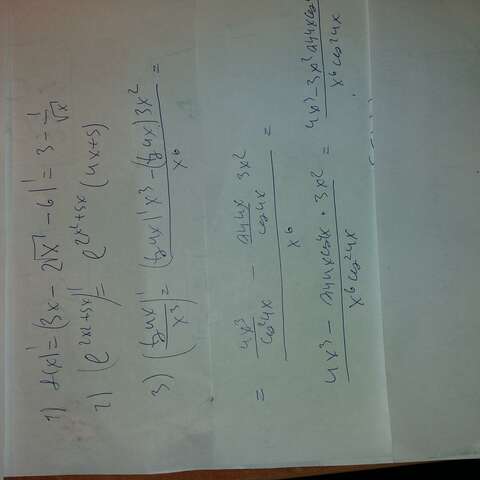 1) f(x)' = (3x - 2√x - 6)' = 3 - 1/√x
2) (e^(2x²+5x))' = e^(2x²+5x) (4x+5)
3) (tg4x/x³)' = ((tg4x)' x³ - (tg4x) 3x²)/x⁶ =
= (4x³/cos²4x - sin4x/cos4x 3x²)/x⁶ =
(4x³ - sin4xcos4x · 3x²)/(x⁶cos²4x) = (4x³ - 3x²sin4xcos)/(x⁶cos²4x)